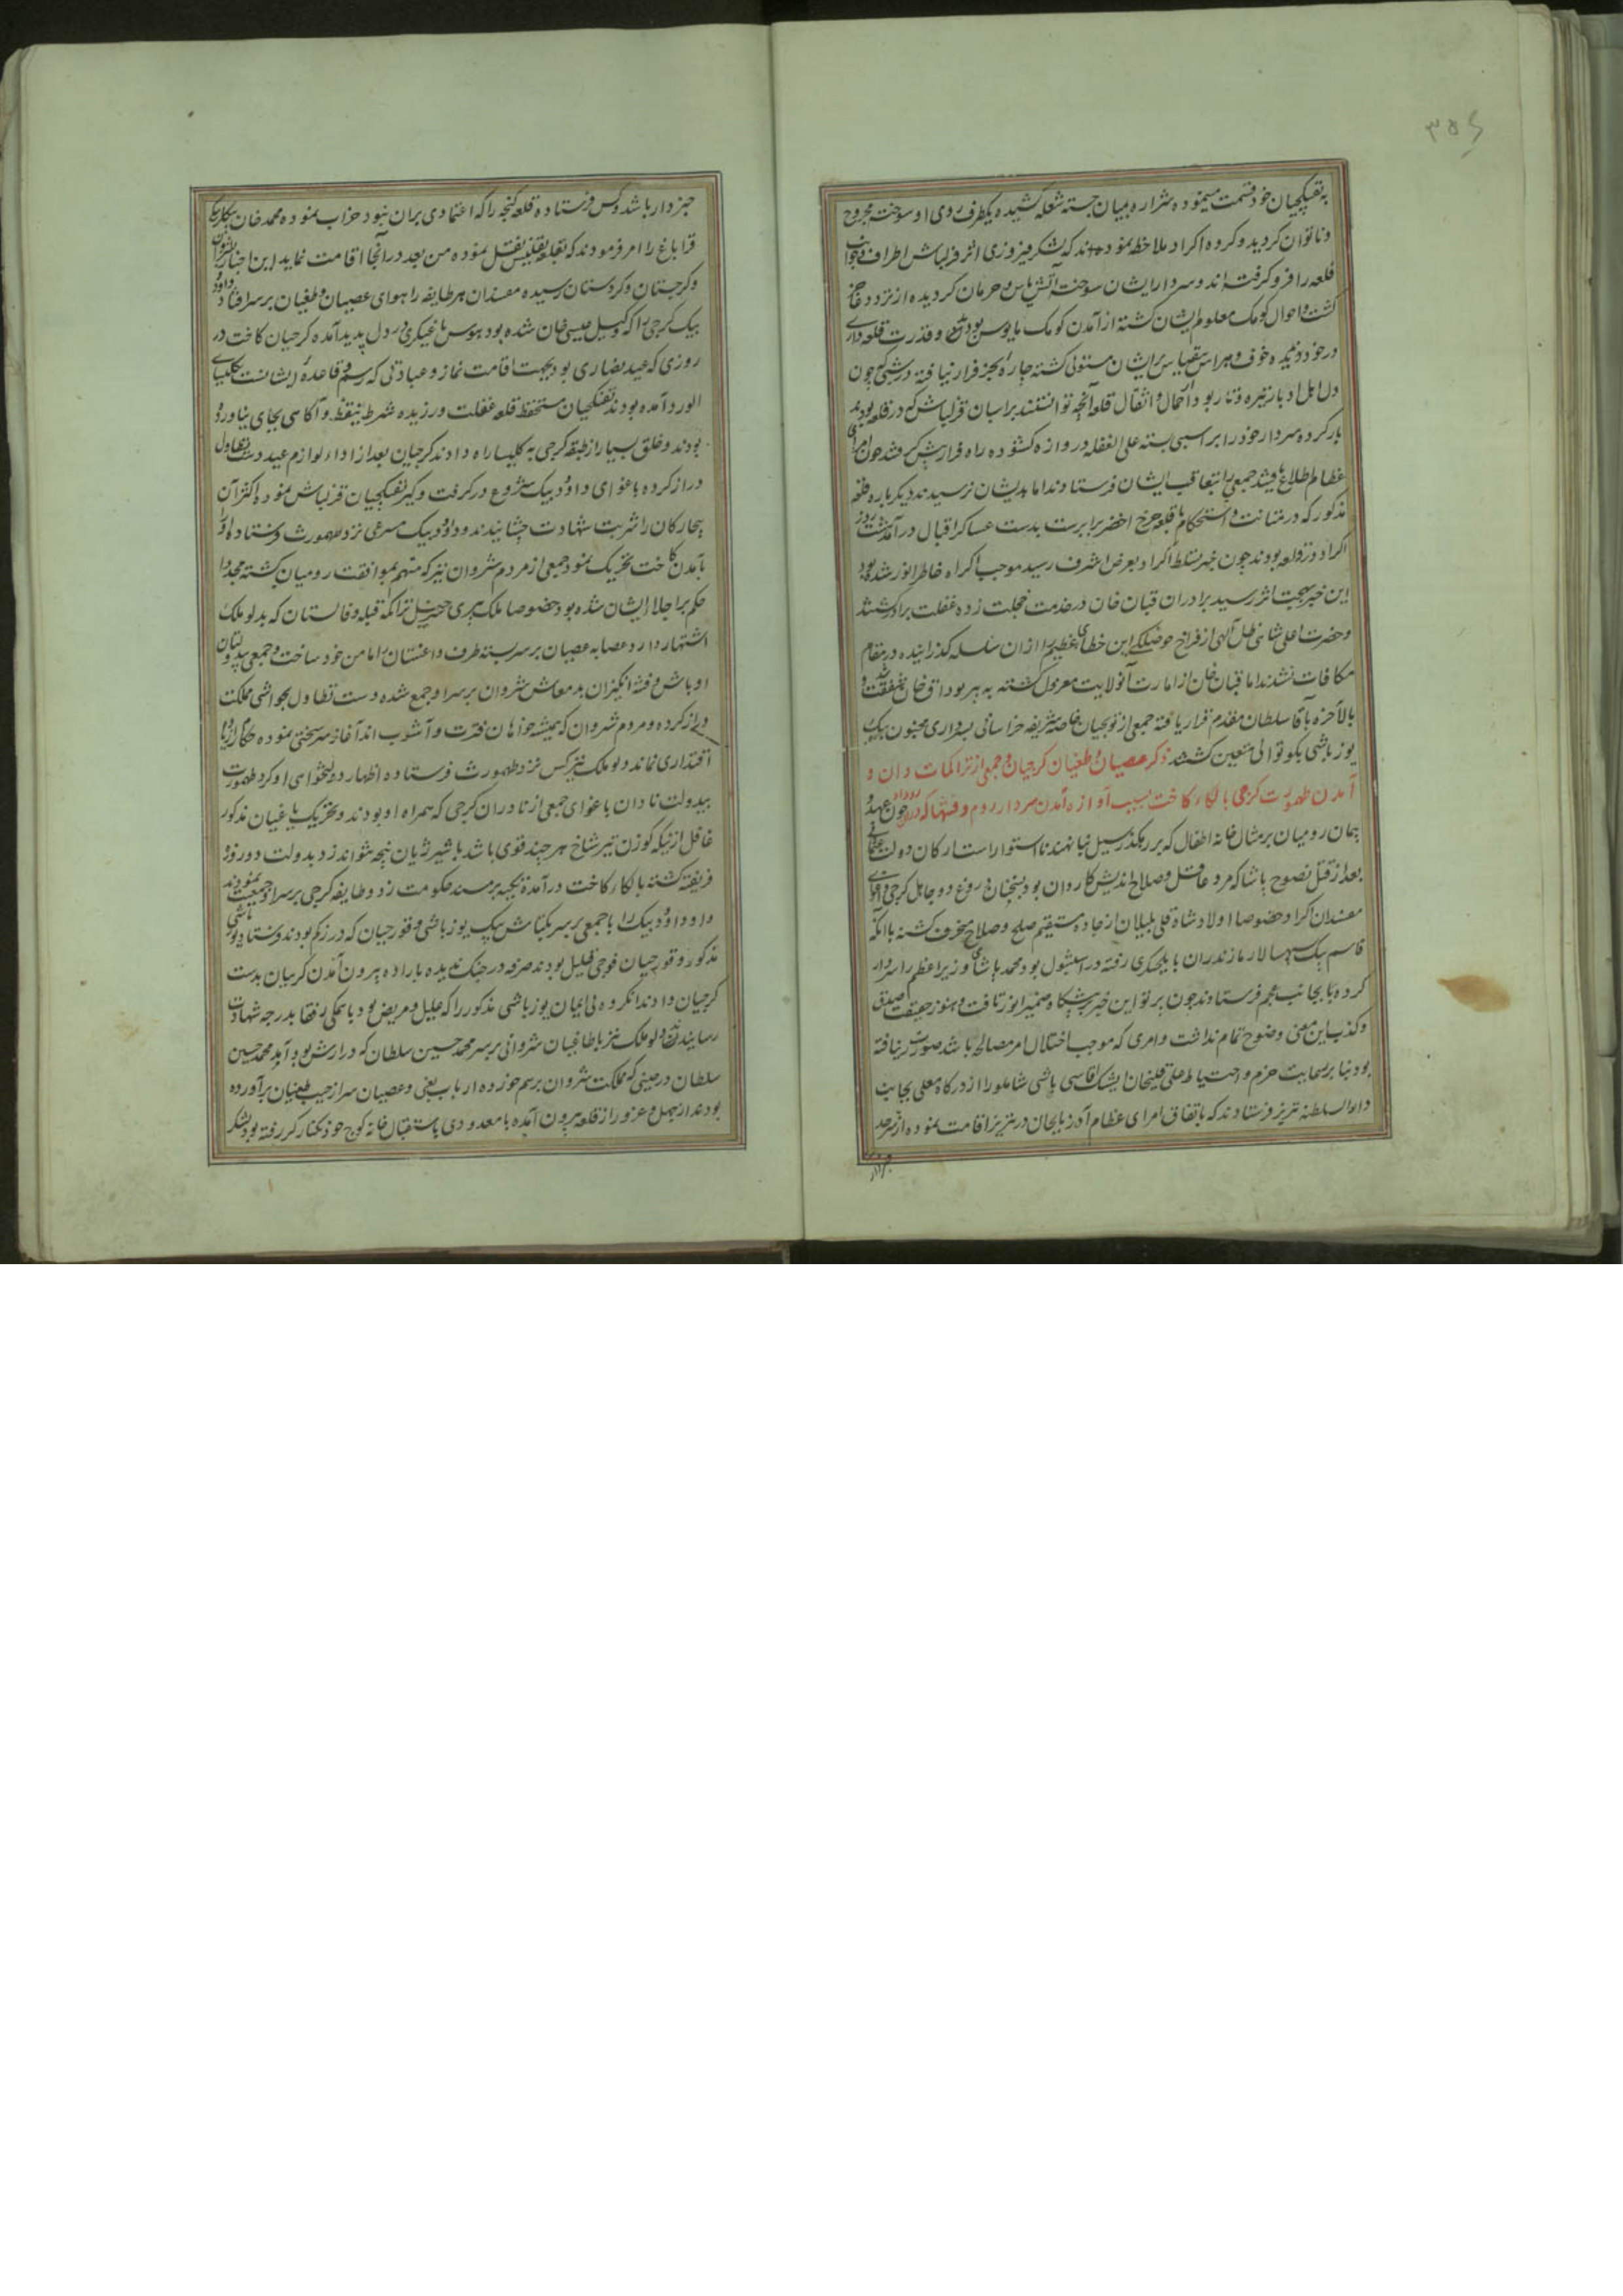 به تفنگچیان خود قسمت مینموده شراره بمیان جسته شعله کشیده یکطرف روی او سوخت مجروح
و ناتوان کردید و کروه اکراد ملاحظه نمودند که لشکر فیروزی اثر قزلباش اطراف و جوانب
قلعه را فرو کرفته اند و سردار ایشان سوخته آتش یاس و حرمان کردیده از تردد عاجز
کشت و احوال کومک معلوم ایشان کشته از آمدن کومک مایوس بودند و قدرت قلعه داری
در خود ندیده خوف و هراس بیقیاس بر ایشان مستولی کشته چاره بجز فرار نیافته در شبی که چون
دل اهل ادبار تیره و تار بود احمال و اثقال قلعه آنچه توانستند بر اسبان قزلباش که در قلعه بودند
بار کرده سردار خود را بر اسبی بسته علی الغفله دروازه کشوده راه فرار پیش کرفتند چون امرای
عظام اطلاع یافتند جمعی را بتعاقب ایشان فرستادند اما بدیشان نرسیدند دیکرباره قلعه
مذکور که در متانت و استحکام با قلعه چرخ اخضر برابرست بدست عساکر اقبال درآمد هشت روز
اکراد در قلعه بودند چون خبر تسلط اکراد بعرض اشرف رسید موجب اکراه خاطر انور شده بود
این خبر بهجت اثر رسید برادران قبان خان در خدمت خجلت زده غفلت برادر کشتند
و حضرت اعلی شاهی ظل آلهی از فراخ حوصلکی این خطای عظیم را ازان سلسله کذرانیده در مقام
مکافات نشدند اما قبان خان از امارت آنولایت معزول کشته به پیر بوداق خان شفقت شد و
بالاخره بآقا سلطان مقدم قرار یافته جمعی از توپچیان خاصه شریفه خراسانی بسرداری مجنون بیک
یوزباشی بکوتوالی متعین کشتند ذکر عصیان و طغیان کرجیان و جمعی از تراکمات دان و
آمدن طهمورث کرجی با لکاء کاخت بسبب آوازه آمدن سردار روم و فتنها که روی داد چون عهد و
پیمان رومیان بر مثال خانه اطفال که بر رهکذر سیل بنا نهند نا استوار است ارکان دولت عثمانی
بعد از قتل نصوح پاشا که مرد عاقل و صلاح اندیش کاردان بود بسخنان دروغ دو جاهل کرجی و اغوای
مفسدان اکراد خصوصا اولاد شاه قلی بلیلان از جاده مستقیم صلح و صلاح منحرف کشته با آنکه
قاسم بیک سپهسالار مازندران بایلچیکری رفته در استنبول بود محمد پاشای وزیر اعظم را سردار
کرده بجانب عجم فرستادند چون پرتو این خبر به پیشکاه ضمیر انور تافت و هنوز حقیقت صدق
و کذب این معنی وضوح تمام نداشت و امری که موجب اختلال امر مصالحه باشد صورت نیافته
بود بنا بر رعایت حزم و احتیاط علیقلیخان ایشک آقاسی باشی شاملو را از درکاه معلی بجانب
دارالسلطنه تبریز فرستادند که باتفاق امرای عظام آذربایجان در تبریز اقامت نموده از سرحد
خبردار
خبردار باشد و کس فرستاده قلعه کنجه را که اعتمادی بران نبود خراب نموده محمد خان بیکلربیکی
قراباغ را امر فرمودند که بقلعه تفلیس نقل نموده من بعد در آنجا اقامت نماید این اخبار بشروان
و کرجستان و کردستان رسیده مفسدان هر طایفه را هوای عصیان و طغیان بر سر افتاد داود
بیک کرجی را که وکیل عیسی خان شده بود هوس یاغیکری در دل پدید آمده کرجیان کاخت در
روزی که عید نصاری بود بجهت اقامت نماز و عبادتی که رسم و قاعده ایشانست بکلیسای
الورد آمده بودند تفنکچیان مستحفظ قلعه غفلت ورزیده شرط تیقظ و آکاهی بجای نیاورده
بودند و خلق بسیار از طبقه کرجی به کلیسا راه دادند کرجیان بعد از اداء لوازم عید دست تطاول
دراز کرده باغوای داود بیک شروع در کرفت و کیر تفنکچیان قزلباش نمود و اکثر آن
بیچارکان را شربت شهادت چشانیدند و داود بیک مسرعی نزد طهمورث فرستاده او را
بآمدن کاخت تحریک نمود جمعی از مردم شروان نیز که متهم بموافقت رومیان کشته مجددا
حکم بر اجلاء ایشان شده بود خصوصا ملک پیری تراکمه قبله و قالستان که بدلو ملک
اشتهار دارد عصابه عصیان بر سر بسته طرف داغستان را مامن خود ساخت و جمعی بیدولتان
اوباش و فتنه انکیزان بدمعاش شروان بر سر او جمع شده دست تطاول بحواشی مملکت
دراز کرده و مردم شروان که همیشه خواهان فترت و آشوب اند آغاز سرسختی نموده حکام را زیاده
اقتداری نماند دلو ملک نیز کس نزد طهمورث فرستاده اظهار دولتخواهی او کرد طهمورث
بیدولت نادان باغوای جمعی از نادران کرجی که همراه او بودند و تحریک یاغیان مذکور
غافل ازینکه کوزن تیز شاخ هر چند قوی باشد با شیر ژیان پنجه نتواند زد بدولت دو روزه
فریفته کشته با لکاء کاخت درآمده تکیه بر مسند حکومت زد و طایفه کرجی بر سر او جمعیت نمودند
و او داود بیک را با جمعی بر سر بکتاش بیک یوزباشی و قورچیان که در زکم بودند فرستاد یوزباشی
مذکور و قورچیان فوجی قلیل بودند صرفه در جنک ندیده باراده بیرون آمدن کریبان بدست
کرجیان دادند انکروه بی ایمان یوزباشی مذکور را که علیل و مریض بود با تمکی رفقا بدرجه شهادت
رسانیدند و دلو ملک نیز با طاغیان شروانی بر سر محمد حسین سلطان که در ارش بود آمد محمد حسین
سلطان در حینی که مملکت شروان برهم خورده ارباب بغی و عصیان سر از جیب طغیان برآورده
بودند از جهل و غرور از قلعه بیرون آمده با معدودی باستقبال خانه کوچ خود که بکنار کر رفته بود لشکر